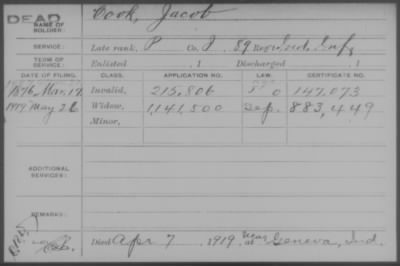 DEAD
NAME OF SOLDIER:
Cook, Jacob
SERVICE:
Late rank, P Co. I, 89 Reg't Ind. Inf.
TERM OF SERVICE:
Enlisted , 1 Discharged , 1
DATE OF FILING. CLASS. APPLICATION NO. LAW. CERTIFICATE NO.
1876, Mar. 17. Invalid, 215,806 147,073
1919, May 26 Widow, 1,141,500 883,449
Minor,
ADDITIONAL SERVICES:
REMARKS:
Died Apr 7, 1919, near at Geneva, Ind.